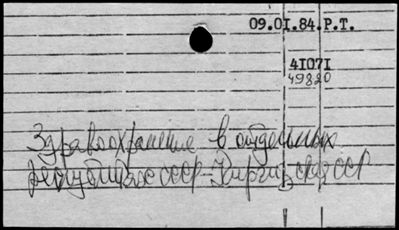 09.01.84.Р.Т.
41071
49820
Здравоохранение в отдельных
республиках СССР - Киргизская ССР